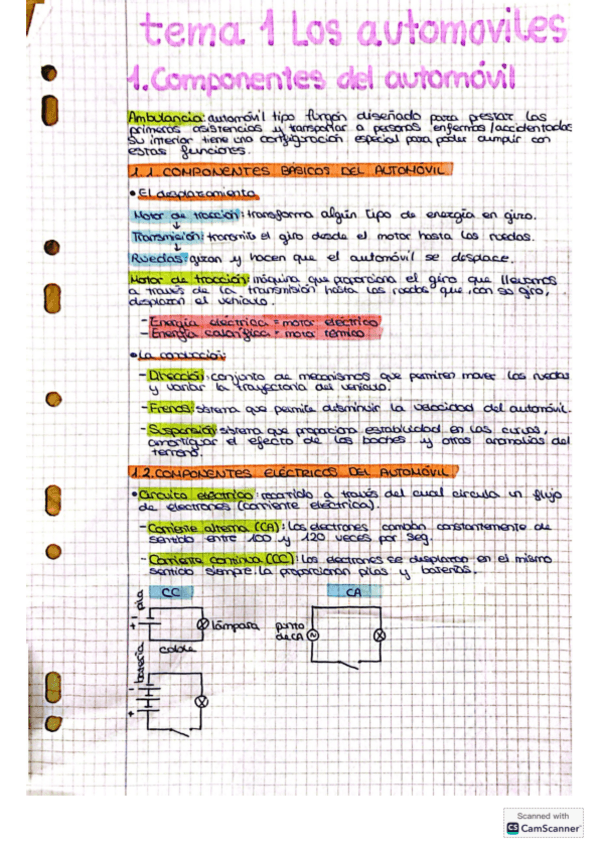 tema 1 Los automoviles
1. Componentes del automóvil
Ambulancia: automóvil tipo furgón diseñado para prestar las
primeras asistencias y transportar a personas enfermas/accidentadas
Su interior tiene una configuración especial para poder cumplir con
estas funciones.
1.1 COMPONENTES BÁSICOS DEL AUTOMÓVIL
• El desplazamiento
Motor de tracción: transforma algún tipo de energía en giro.
↓
Transmisión: transmite el giro desde el motor hasta las ruedas.
↓
Ruedas: giran y hacen que el automóvil se desplace.
Motor de tracción: máquina que proporciona el giro que llevamos
a través de la transmisión hasta las ruedas que, con su giro,
desplazan el vehículo.
- Energía eléctrica = motor eléctrico
- Energía calorífica = motor térmico
• La conducción:
- Dirección: conjunto de mecanismos que permiten mover las ruedas
y variar la trayectoria del vehículo.
- Frenos: sistema que permite disminuir la velocidad del automóvil.
- Suspensión: sistema que proporciona estabilidad en las curvas,
amortiguar el efecto de los baches y otras anomalías del
terreno.
1.2. COMPONENTES ELÉCTRICOS DEL AUTOMÓVIL
• Circuito eléctrico: recorrido a través del cual circula un flujo
de electrones (corriente eléctrica).
- Corriente alterna (CA): Los electrones cambian constantemente de
sentido entre 100 y 120 veces por seg.
- Corriente continua (CC): Los electrones se desplazan en el mismo
sentido siempre. La proporcionan pilas y baterías.
CC
CA
pila
+ -
lámpara
cable
punto
de CA
batería
+ -
Scanned with
CS CamScanner